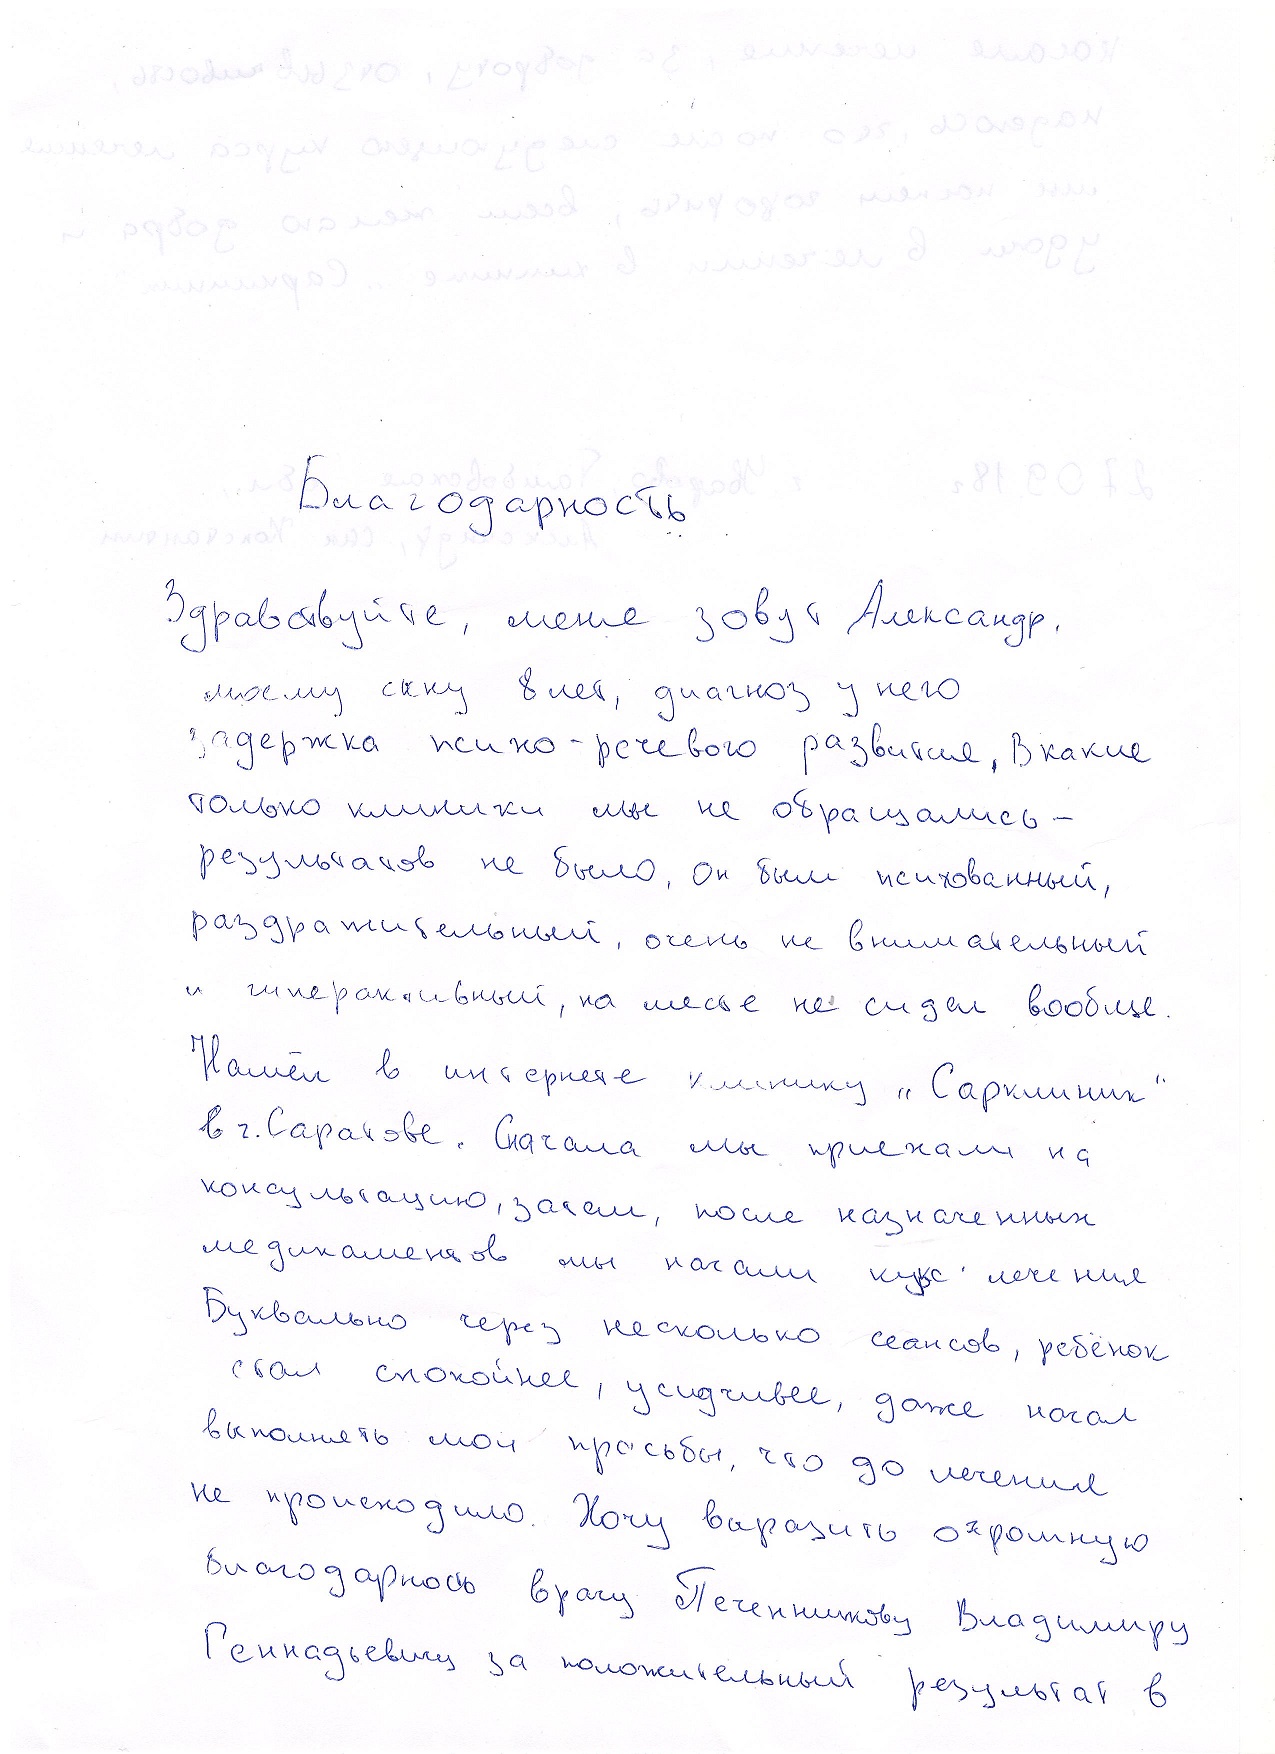 Благодарность
Здравствуйте, меня зовут Александр.
моему сыну 8 лет, диагноз у него
задержка психо-речевого развития, В какие
только клиники мы не обращались -
результатов не было, он был психованный,
раздражительный, очень не внимательный
и гиперактивный, на месте не сидел вообще.
Нашёл в интернете клинику „Сарклиник“
в г. Саратове. Сначала мы приехали на
консультацию, затем, после назначенных
медикаментов мы начали курс лечения
Буквально через несколько сеансов, ребёнок
стал спокойнее, усидчивее, даже начал
выполнять мои просьбы, что до лечения
не происходило. Хочу выразить огромную
благодарность врачу Печенникову Владимиру
Геннадьевичу за положительный результат в